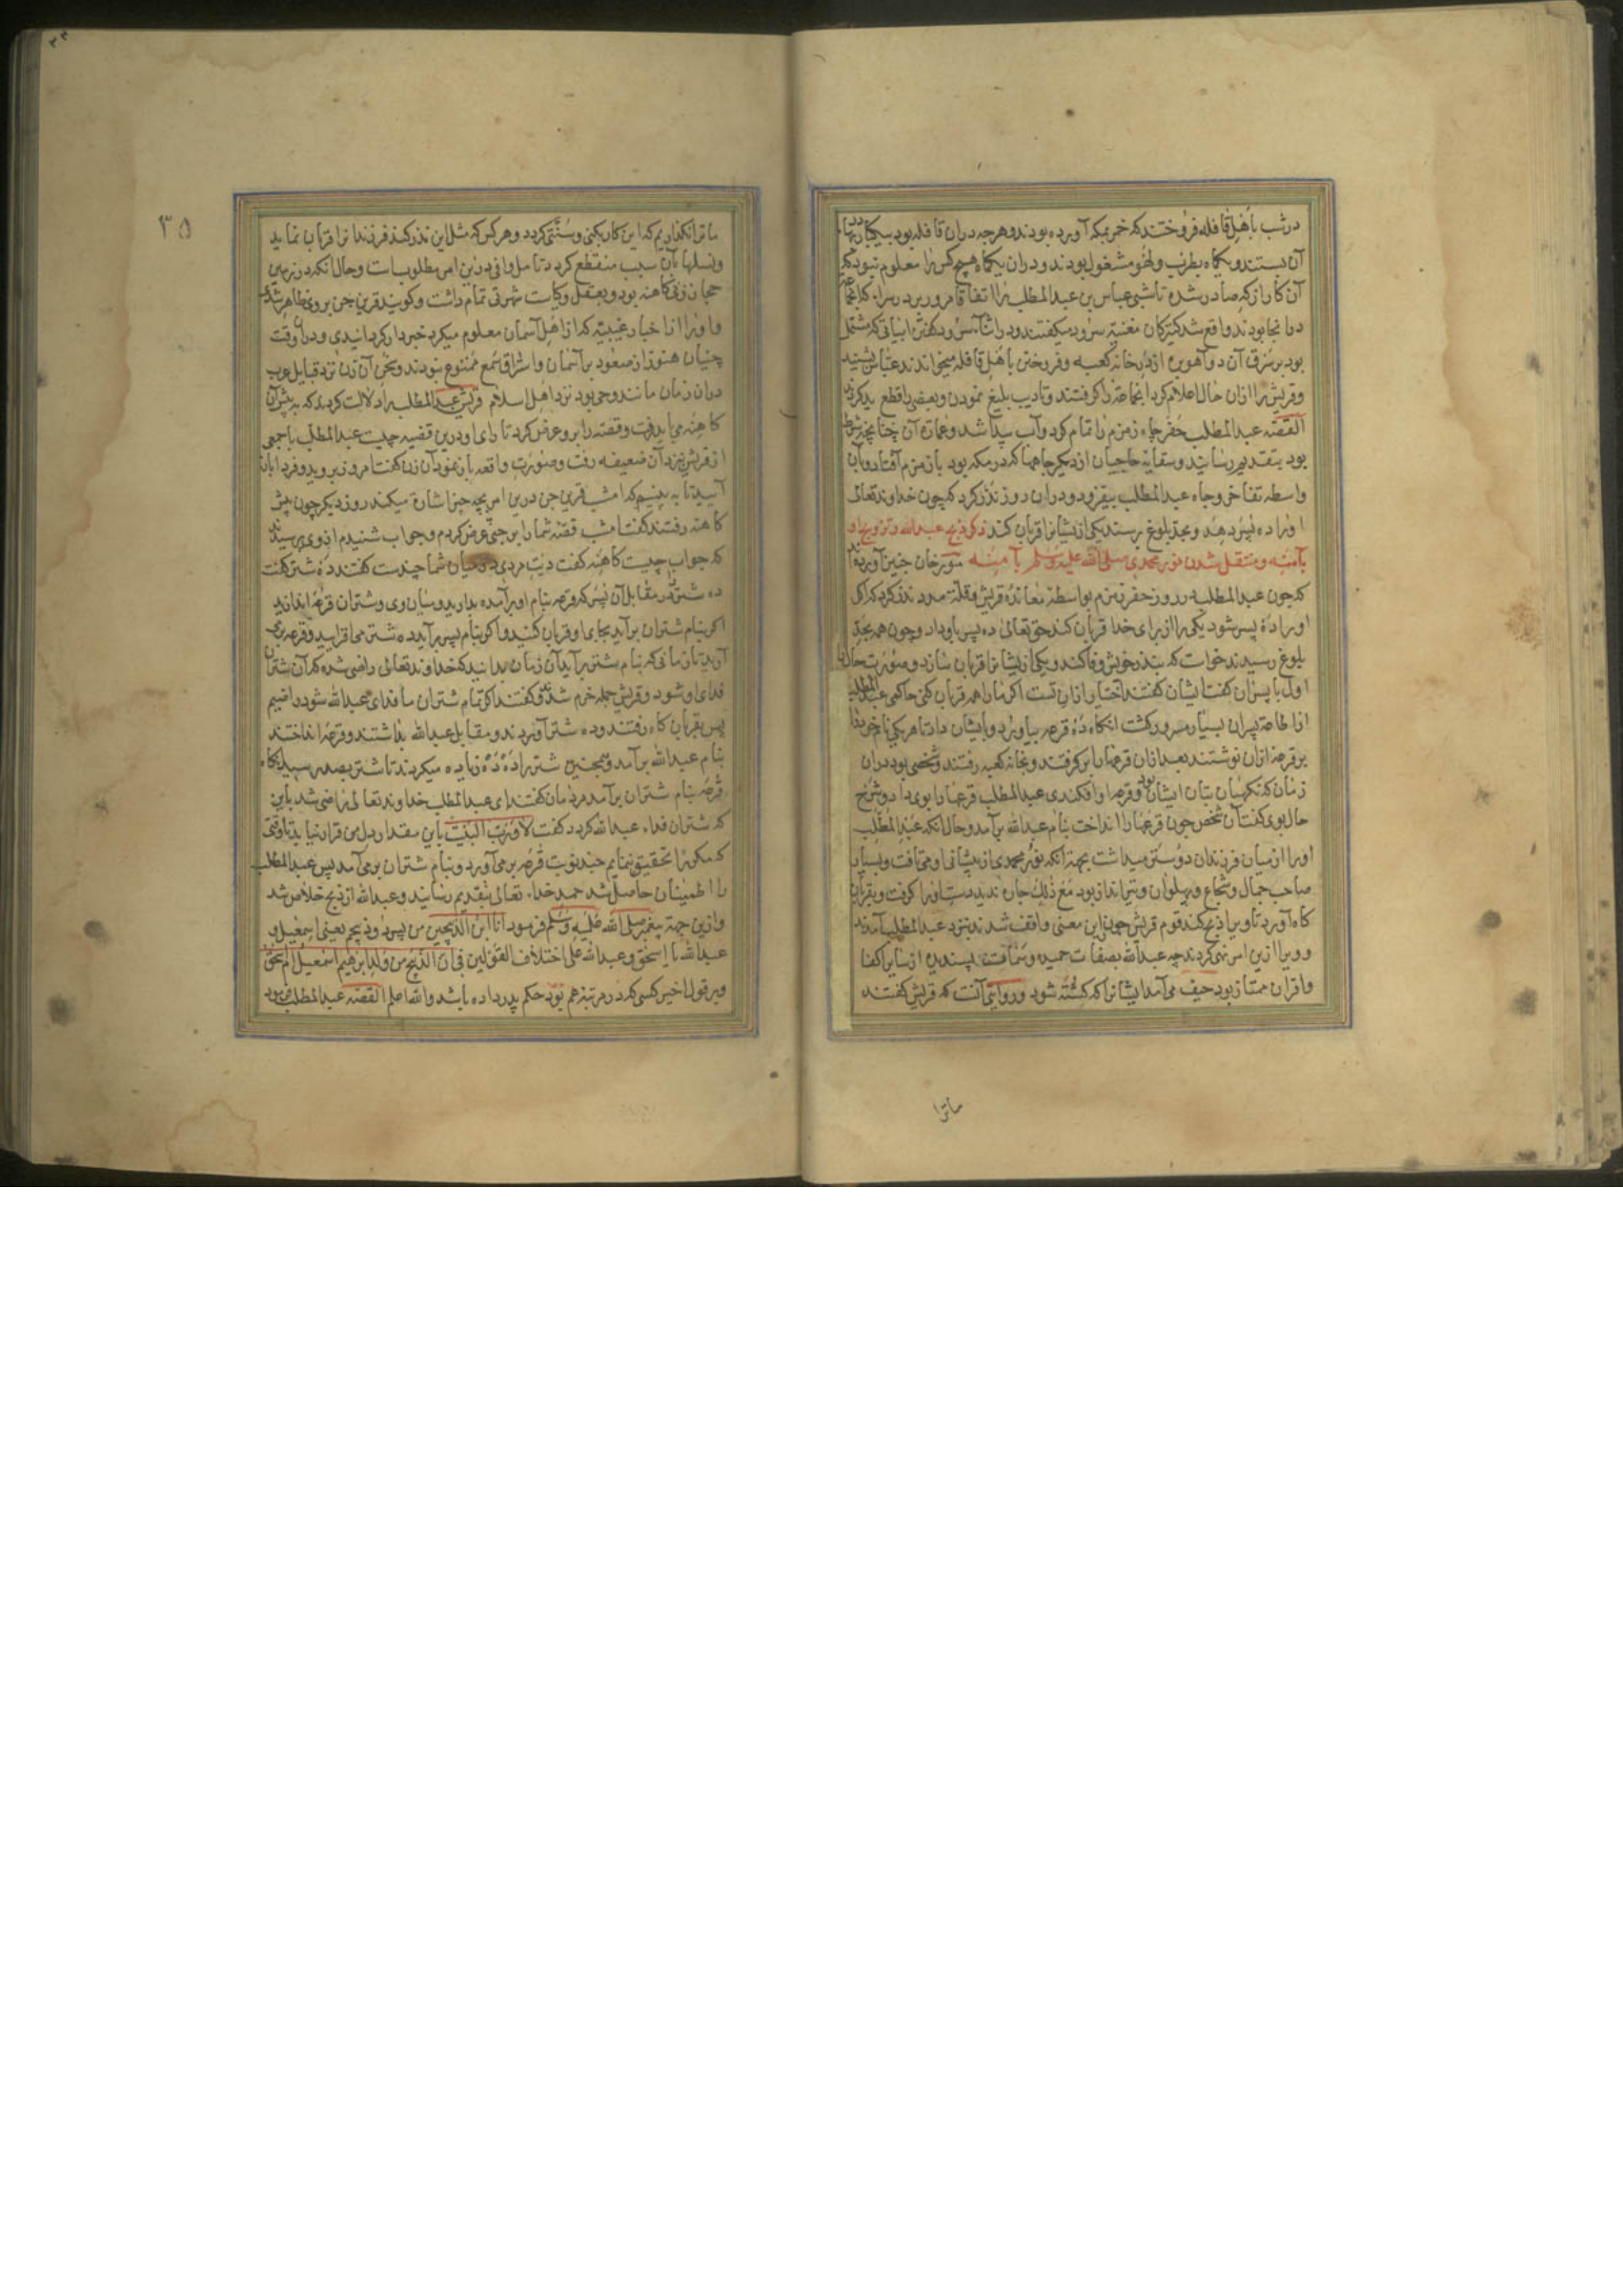 در شب باهل قافله فروختند که خمر بمکه آورده بودند و هرچه دران قافله بود بیکبار بها
آن بستند و یکماه بطرب و لهو مشغول بودند و دران یکماه هیچ کس را معلوم نبود که
آن کار از که صادر شده تا شبی عباس بن عبدالمطلب را اتفاقا مرور بر در سراء
واقع شد کنیزکان مغنیه سرود میکفتند و در اثناء سرود کفتن ابیاتی که مشتمل
بود بر سرق آن دو آهوبره از در خانه کعبه و فروختن باهل قافله میخواندند عباس بشنید
و قریش را ازان حال اعلام کرد آنجماعة را کرفتند و تادیب بلیغ نمودن و بعضی را قطع ید کردند
القصه عبدالمطلب حفر چاه زمزم را تمام کرد و آب پیدا شد و عمارة آن چنانچه شرط
بود بتقدیم رسانید و سقایة حاجیان از دیکر چاهها که در مکه بود بازمزم افتاد و بآن
واسطه تفاخر و جاه عبدالمطلب بیفزود و دران روز نذر کرد که چون خداوند تعالی
اورا ده پسر دهد و بحد بلوغ برسند یکی از یشانرا قربان کند ذکر ذبح عبدالله و تزویج او
بآمنه و منتقل شدن نور محمدی صلی الله علیه وسلم بآمنه مورخان چنین آورده اند
که چون عبدالمطلب در روز حفر زمزم بواسطة معاندهٔ قریش و قلة مدد نذر کرد که اکر
اورا دهٔ پسر شود یکی را از برای خدا قربان کند حق تعالی ده پسر باو داد و چون همه بحد
بلوغ رسیدند خواست که بنذر خویش وفا کند و یکی از یشانرا قربان سازد و صورت حال را
اول با پسران کفت ایشان کفتند اختیار ازان تست اکر مارا همه قربان کنی حاکمی عبدالمطلب
از اطاعة پسران بسیار مسرور کشت انکاه دهٔ قرعه بیاورد و بایشان داد تا هر یکی نام خویش
بر قرعهٔ ازان نوشتند بعد ازان قرعهارا برکرفتند و بخانه کعبه رفتند و شخصی بود دران
زمان که نکهبان بتان ایشان بود و قرعه او افکندی عبدالمطلب قرعهارا بوی داد و شرح
حال بوی کفت آن شخص چون قرعهارا انداخت بنام عبدالله برآمد و حال انکه عبدالمطلب
اورا از میان فرزندان دوستر میداشت بجهة انکه نور محمدی از پیشانی او می تافت و بسیار
صاحب جمال و شجاع و پهلوان و تیرانداز بود مع ذلک چاره ندید دست اورا کرفت و بقربان
کاه آورد تا ویرا ذبح کند قوم قریش چون این معنی واقف شدند بنزد عبدالمطلب آمدند
و ویرا ازین امر نهی کردند چه عبدالله بصفات حمیده و سمات پسندیده از سایر اکفا
و اقران ممتاز بود حیف می آمد ایشانرا که کشته شود و روایتی آنست که قریش کفتند
ماترا
۳۵
ماترا نکذاریم که این کار بکنی و سنتی کردد و هر کس که مثل این نذر کند فرزندانرا قربان نماید
و نسلها بآن سبب منقطع کردد تامل وافی درین امر مطلوبست و حال انکه در زمین
حجاز زنی کاهنه بود و بعقل و کیاست شهرتی تمام داشت و کویند قرین جن بر وی ظاهر شدی
و اورا از اخبار غیبیه که از اهل آسمان معلوم میکرد خبردار کردانیدی و دران وقت
جنیان هنوز از صعود بر آسمان و استراق سمع ممنوع نبودند و سخن آن زن نزد قبایل عرب
دران زمان مانند وحی بود نزد اهل اسلام قریش عبدالمطلب را دلالت کردند که به پیش آن
کاهنه می باید رفت و قصه را برو عرض کرد تا رای او درین قضیه چیست عبدالمطلب با جمعی
از قریش نزد آن ضعیفه رفت و صورت واقعه باز نمود آن زن کفت امروز بروید و فردا باز
آیید تا به بینیم که امشب قرین جن درین امر بچه چیز اشارة میکند روز دیکر چون پیش
کاهنه رفتند کفت امشب قصه شمارا بر جنی عرض کردم و جواب شنیدم از وی پرسیدند
که جواب چیست کاهنه کفت دیت مردی در میان شما چندست کفتند ده شتر کفت
ده شتر در مقابل آن پسر که قرعه بنام او برآمده بدارید و میان وی و شتران قرعه اندازید
اکر بنام شتران برآید بجای او قربان کنید و اکر بنام پسر برآید ده شتر می افزایید و قرعه می
آرید تا زمانی که بنام شتر برآید آن زمان بدانید که خداوند تعالی راضی شده که آن شتران
فدای او شود و قریش جمله خرم شدند و کفتند اکر تمام شتران ما فدای عبدالله شود راضیم
پس بقربان کاه رفتند و ده شتر آوردند و مقابل عبدالله بداشتند و قرعه انداختند
بنام عبدالله برآمد و همچنین شتر را دهٔ دهٔ زیاده میکردند تا شتر بصد رسید انکاه
قرعه بنام شتران برآمد مردمان کفتند ای عبدالمطلب خداوند تعالی راضی شد باین
که شتران فداء عبدالله کردد کفت لا و رب البیت باین مقدار دل من قرار نیابد تا وقتی
که مکررا تحقیق نمایم چند نوبت قرعه بر می آورد و بنام شتران بر می آمد پس عبدالمطلب
را اطمینان حاصل شد حمد خداء تعالی بتقدیم رسانید و عبدالله از ذبح خلاص شد
و ازین جهة پیغمبر صلی الله علیه وسلم فرمود انا ابن الذبیحین من پسر دو ذبیحم یعنی اسمعیل و
عبدالله یا اسحق و عبدالله علی اختلاف القولین فی ان الذبیح من ولد ابرهیم اسمعیل ام اسحق
و بر قول اخیر کسی که در مرتبه عم بود حکم پدر داده باشد والله اعلم القصه عبدالمطلب